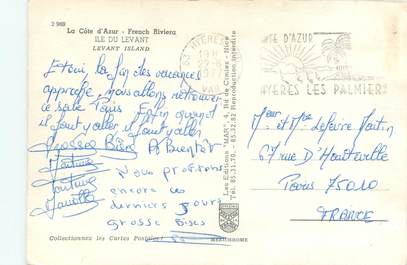 2 969
La Côte d'Azur - French Riviera
ILE DU LEVANT
LEVANT ISLAND
Et oui la fin des vacances
approche, nous allons retrouver
ce sale Paris. Enfin quand
il faut y aller il faut y aller
Grosses Bises A Bientôt
Nous profitons
encore ces
derniers jours
grosse Bises
Collectionnez les Cartes Postales
MEXICHROME
Les Editions "MAR", 4, Bd de Cimiez - Nice
Tél. 85.31.70. - 85.32.82 Reproduction interdite
83 HYERES
18H
22-8
1977
VAR
COTE D'AZUR
HYERES LES PALMIERS
Mr et Mme Lefevre Martin
67 rue D'Hauteville
Paris 75010
FRANCE